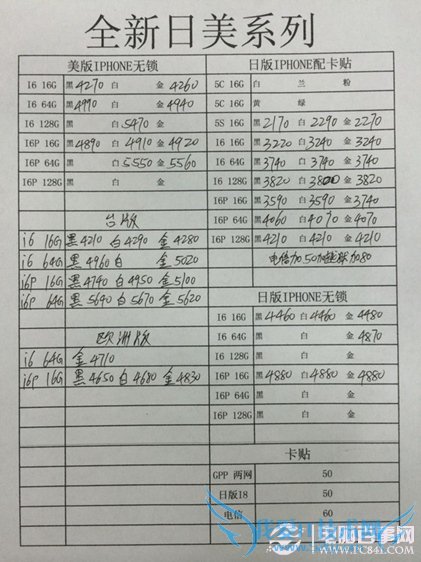 全新日美系列
美版IPHONE无锁
I6 16G 黑4270 白 金 4260
I6 64G 黑4990 白 金 4940
I6 128G 黑 白5470 金
I6P 16G 黑4890 白4910 金 4920
I6P 64G 黑 白5550 金 5560
I6P 128G 黑 白 金
台版
i6 16G 黑4210 白4290 金4280
i6 64G 黑4960 白 金5020
i6P 16G 黑4740 白4950 金5100
i6P 64G 黑5640 白5670 金5620
欧洲版
i6 64G 金4710
i6P 16G 黑4650 白4680 金4830
日版IPHONE配卡贴
5C 16G 白 兰 粉
5C 16G 黄 绿
5S 16G 黑2170 白2290 金2270
I6 16G 黑3220 白3240 金3240
I6 64G 黑3740 白3740 金3740
I6 128G 黑3820 白3800 金3820
I6P 16G 黑3590 白3590 金3740
I6P 64G 黑4060 白4070 金4070
I6P 128G 黑4210 白4210 金4210
电信加50 加80
日版IPHONE无锁
I6 16G 黑4460 白4460 金 4480
I6 64G 黑 白 金 4870
I6 128G 黑 白 金
I6P 16G 黑4880 白4880 金4880
I6P 64G 黑 白 金
I6P 128G 黑 白 金
卡贴
GPP 两网 50
日版I8 50
电信 60
WWW.PC841.COM